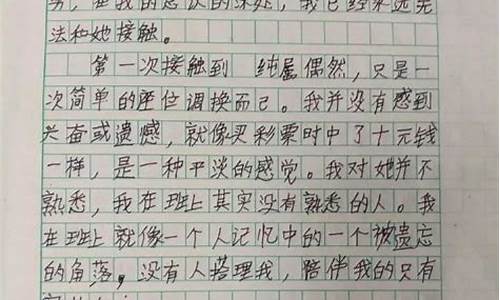 力，在我的意识的深处，我已经永远无
法和她接触。
第一次接触到 纯属偶然，只是一
次简单的座位调换而已。我并没有感到
兴奋或遗憾，就像买彩票时中了十元钱
一样，是一种平淡的感觉。我对她并不
熟悉，我在班上其实没有熟悉的人。我
在班上就像一个人记忆中的一个被遗忘
的角落。没有人搭理我，陪伴我的只有